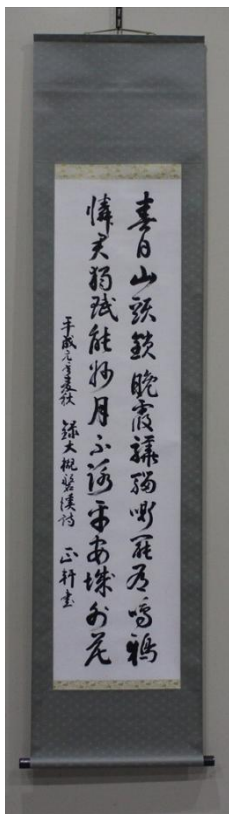 春日山頭鎖晩霞驊騮嘶罷有鳴鴉
憐君獨賦能州月不詠平安城外花
平成元年麦秋 録大槻磐溪詩 正軒書